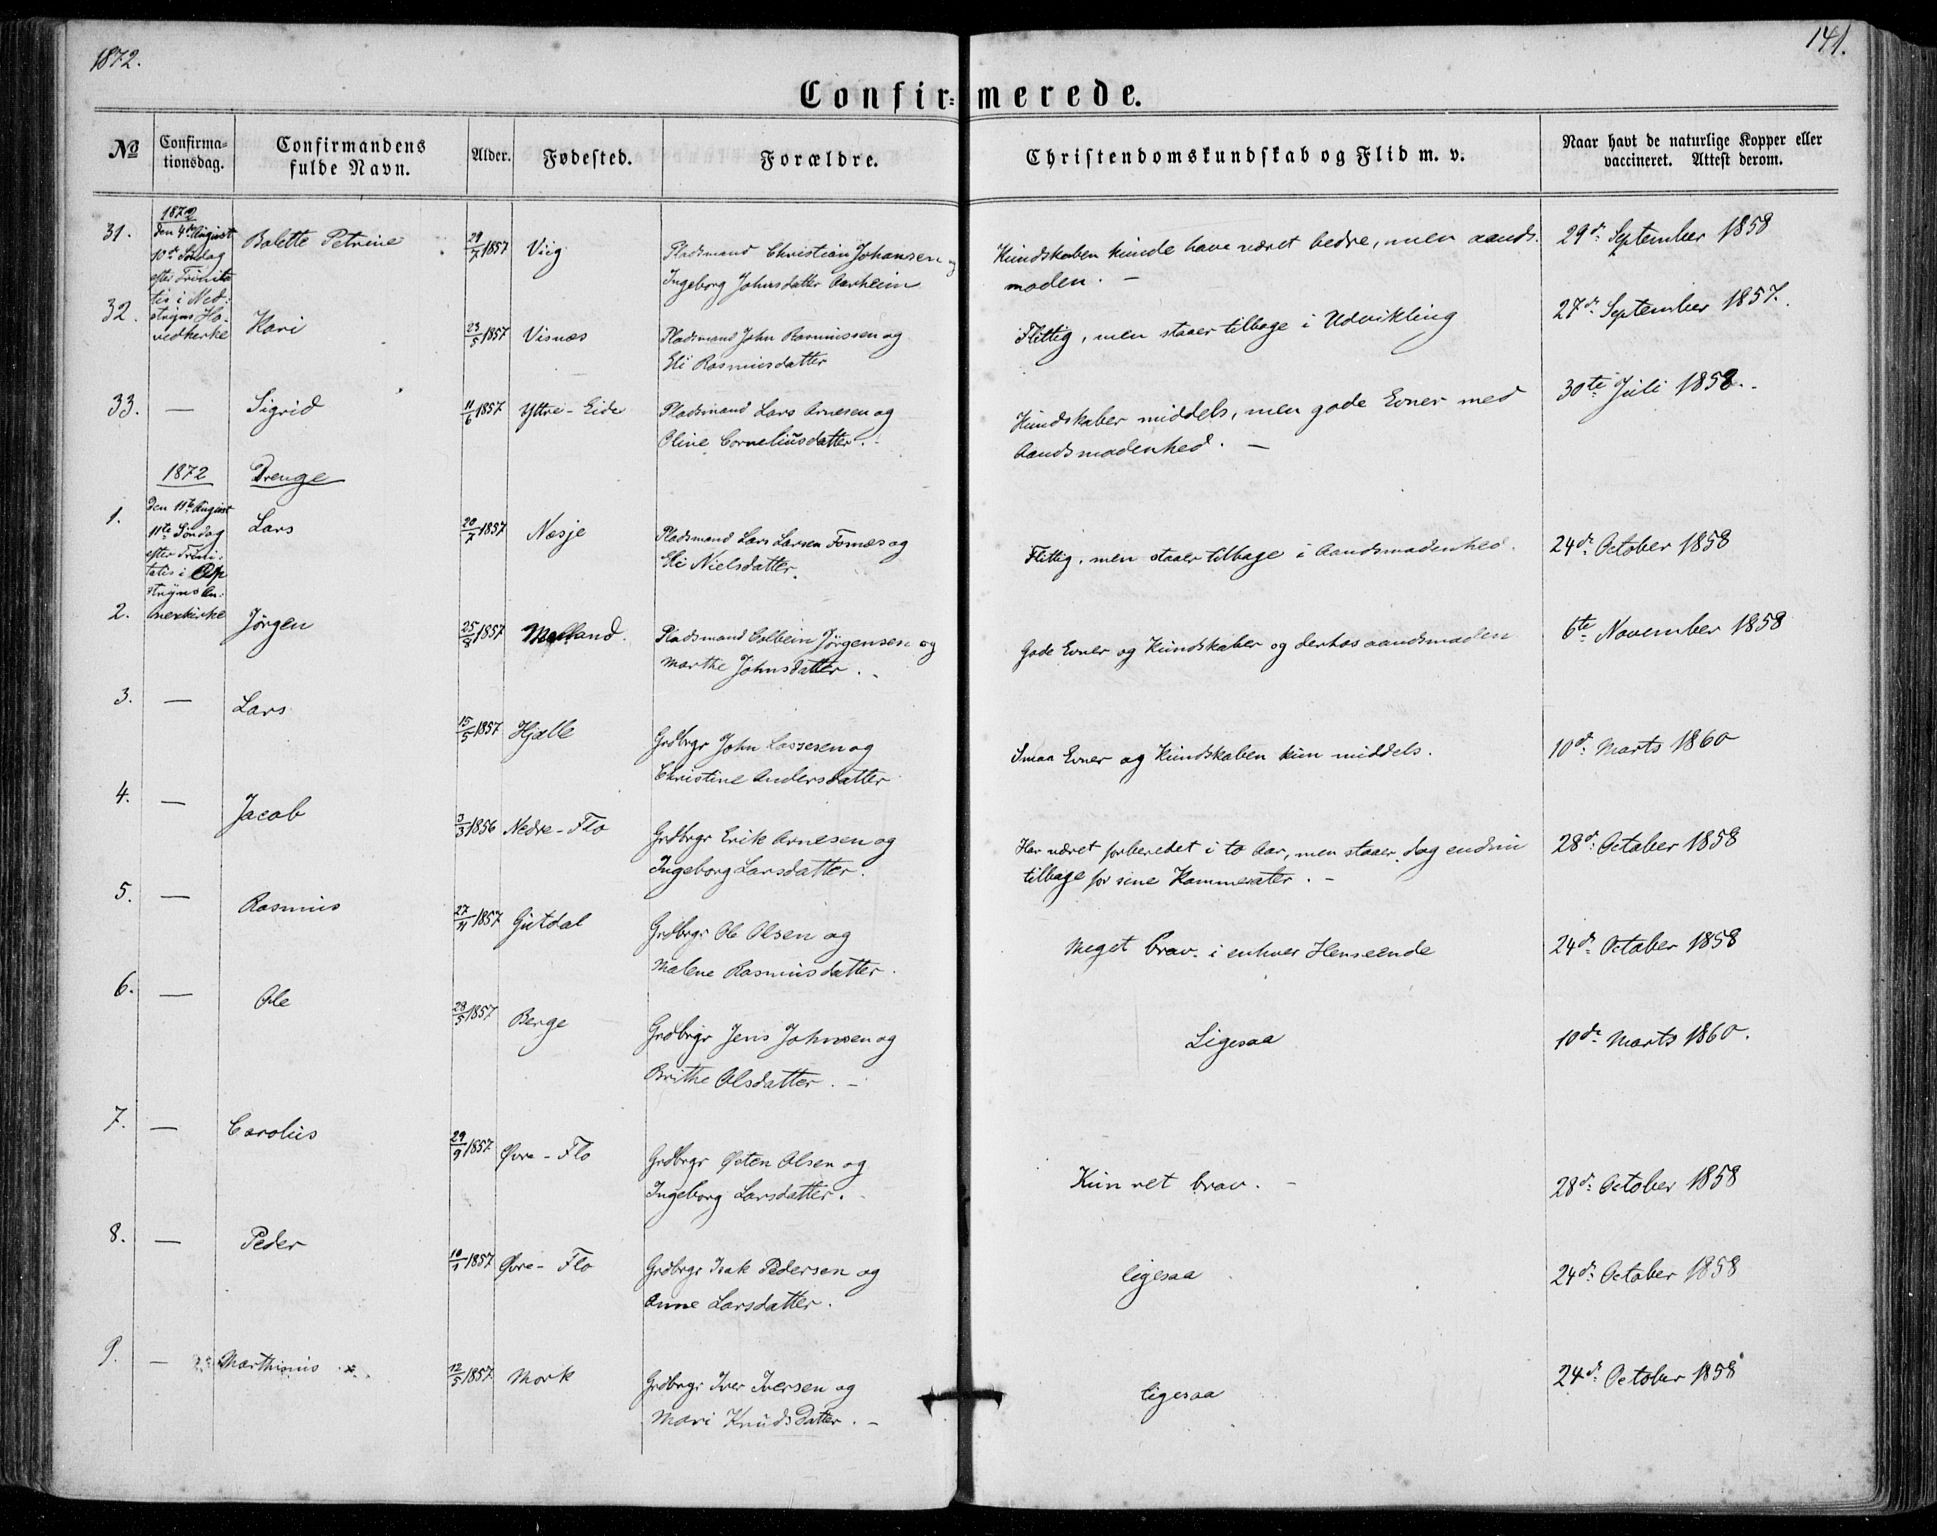 1872.
141.
Confir=merede.
No
Confirma-
tionsdag.
Confirmandens
fulde Navn.
Alder.
Fødested.
Forældre.
Christendomskundskab og Flid m. v.
Naar havt de naturlige Kopper eller
vaccineret. Attest derom.
31.
1872
den 4de August
10de Søndag
efter Trinita
tis i Ned:
stryns Ho-
vedkirke
Bolette Petrine
29/7 1857
Viig
Pladsmand Christian Johansen og
Ingeborg Johnsdatter Aarheim
Kundskaben kunde have været bedre, men aands-
moden. –
29de September 1858
32.
Kari
23/5 1857
Visnæs
Pladsmand John Rasmussen og
Eli Rasmusdatter
Flittig, men staaer tilbage i Udvikling
27de September 1857.
33. —
Sigrid
11/6 1857
Yttre-Eide
Pladsmand Lars Arnesen og
Oline Corneliusdatter.
Kundskaber middels, men gode Evner med
Aandsmodenhed. –
30te Juli 1858.
1872
Drenge
1.
Den 11te August
11te Søndag
efter Trini-
tatis i Op
stryns An-
nexkirke
Lars
20/7 1857
Næsje
Pladsmand Lars Larsen Fosnæs og
Eli Nielsdatter.
Flittig, men staaer tilbage i Aandsmodenhed.
24de October 1858
2.
Jørgen
25/8 1857
Meland.
Pladsmand Colbein Jørgensen og
Marthe Johnsdatter.
Gode Evner og Kundskaber og derhos aandsmoden
6te November 1858
3. —
Lars
15/5 1857
Hjelle
Grdbrgr John Lassesen og
Christine Andersdatter
Smaa Evner og Kundskaben kun middels.
10de Marts 1860
4. —
Jacob
3/3 1856
Nedre-Flo
Grdbrgr Erik Arnesen og
Ingeborg Larsdatter.
Har været forberedet i to Aar, men staaer dog endnu
tilbage for sine Kammerater. –
28de October 1858
5. —
Rasmus
27/11 1857
Gutdal
Grdbrgr Ole Olsen og
Malene Rasmusdatter.
Meget brav i enhver Henseende
24de October 1858
6. —
Ole
28/5 1857
Berge
Grdbrgr Jens Johnsen og
Brithe Olsdatter. –
Ligesaa
10de Marts 1860.
7. —
Carolus
29/9 1857
Øvre-Flo
Grdbrgr Østen Olsen og
Ingeborg Larsdatter.
Kun ret brav. –
28de October 1858
8. —
Peder
10/1 1857
Øvre-Flo
Grdbrgr Isak Pedersen og
Anne Larsdatter.
ligesaa
24de October 1858
9. —
Marthinus x
12/5 1857
Mork
Grdbrgr Iver Iversen og
Mari Knudsdatter. –
ligesaa
24de October 1858